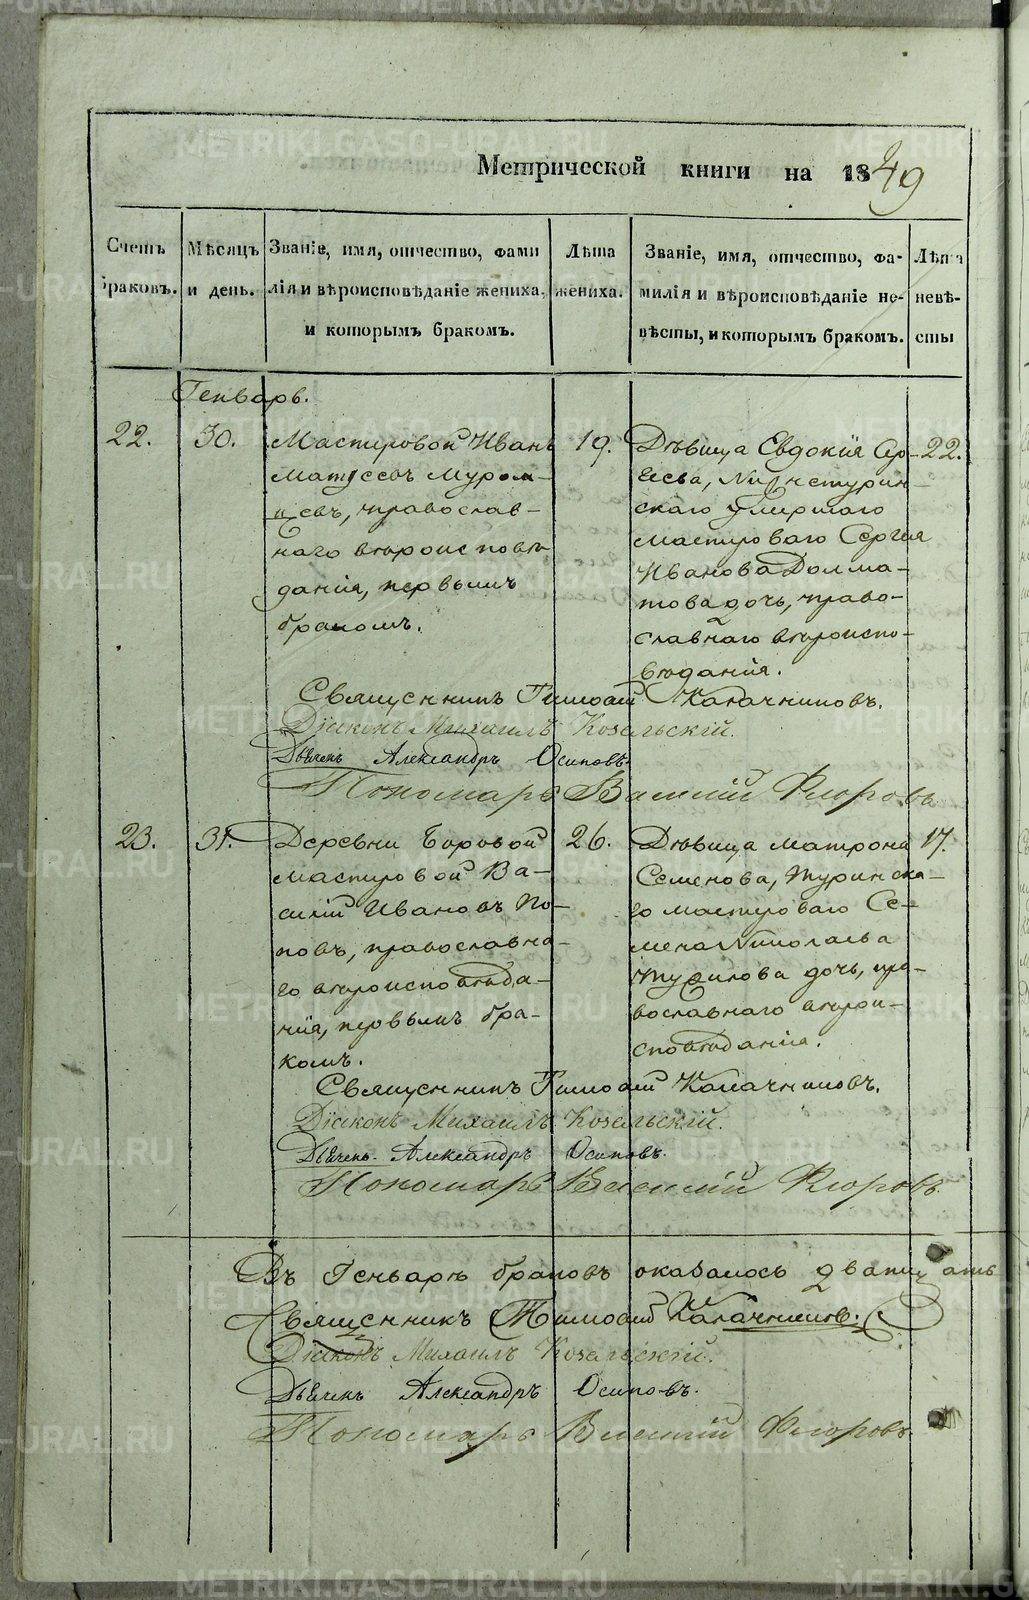 Метрической книги на 1849
Счетъ браковъ.
Мѣсяцъ и день.
Званіе, имя, отчество, фами
лія и вѣроисповѣданіе жениха,
и которымъ бракомъ.
Лѣта
жениха.
Званіе, имя, отчество, фа-
милія и вѣроисповѣданіе не-
вѣсты, и которымъ бракомъ.
Лѣта
невѣ-
сты
Генварь.
22.
30.
Мастировой Иванъ
Матѳеевъ Муром-
цевъ, православ-
наго вѣроисповѣ
данія, первымъ
бракомъ.
19.
Дѣвица Евдокія Сер-
геева,
скаго умершаго
мастироваго Сергея
Иванова Долма-
това дочь, право-
славнаго вѣроиспо-
вѣданія.
22.
Священникъ Тимоѳей Калачниковъ.
Діяконъ Михаилъ Козельскій.
Дьячекъ Александръ Осиповъ
Пономарь Василій Флоровъ
23.
31.
Деревни Боровой
мастировой Ва-
силій Ивановъ По-
повъ, православна-
го вѣроисповѣда-
нія, первымъ бра-
комъ.
26.
Дѣвица Матрона
Семенова, Туринска-
го мастироваго Се-
мена Николаева
дочь, пра-
вославнаго вѣрои-
сповѣданія.
17.
Священникъ Тимоѳей Калачниковъ.
Діяконъ Михаилъ Козельскій.
Дьячекъ Александръ Осиповъ.
Пономарь Василій Флоровъ
Въ Генварѣ браковъ оказалось дватцать
Священникъ Тимоѳей Калачниковъ.
Діяконъ Михаилъ Козельскій.
Дьячекъ Александръ Осиповъ.
Пономарь Василій Флоровъ
METRIKI.GASO-URAL.RU